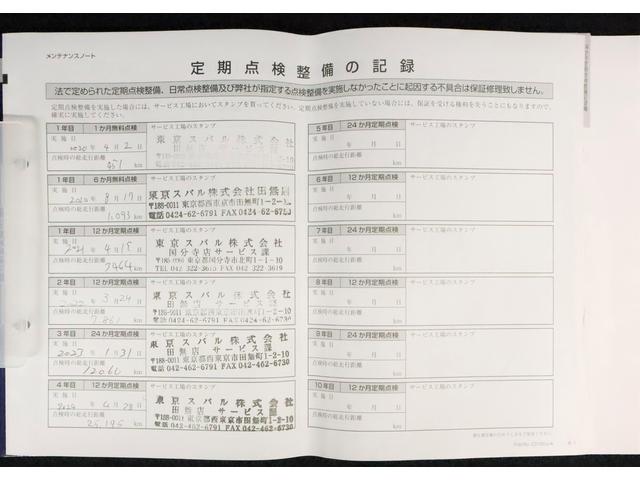 メンテナンスノート
定期点検整備の記録
法で定められた定期点検整備、日常点検整備及び弊社が指定する点検整備を実施しなかったことに起因する不具合は保証修理致しません。
定期点検整備を実施した場合には、サービス工場においてスタンプを貰ってください。定期点検整備を実施していない場合には、保証を受ける権利を失うことにもなりますので、
確実に実施してください。
1年目 1か月無料点検 サービス工場のスタンプ
実施日 2020年4月2日
点検時の総走行距離 km
東京スバル株式会社
田無店 サービス課
1年目 6か月無料点検 サービス工場のスタンプ
実施日 8月17日
点検時の総走行距離 1,093 km
東京スバル株式会社田無店
〒188-0011 東京都西東京市田無町1-2-10
電話0424-62-6791 FAX0424-62-6750
1年目 12か月定期点検 サービス工場のスタンプ
実施日 2021年4月19日
点検時の総走行距離 7464 km
東京スバル株式会社
国分寺店サービス課
東京都国分寺市北町1-1-10
TEL 042 322-3615 FAX 042 322-3619
2年目 12か月定期点検 サービス工場のスタンプ
実施日 2022年3月24日
点検時の総走行距離 km
東京スバル株式会社
田無店 サービス課
〒188-0011 東京都西東京市田無町1-2-10
042-462-6791 FAX 042-462-6730
3年目 24か月定期点検 サービス工場のスタンプ
実施日 2023年1月31日
点検時の総走行距離 12060 km
東京スバル株式会社
田無店 サービス課
〒188-0011 東京都西東京市田無町1-2-10
042-462-6791 FAX 042-462-6730
4年目 12か月定期点検 サービス工場のスタンプ
実施日 2024年4月28日
点検時の総走行距離 25,195 km
東京スバル株式会社
田無店 サービス課
〒188-0011 東京都西東京市田無町1-2-10
042-462-6791 FAX 042-462-6730
5年目 24か月定期点検 サービス工場のスタンプ
実施日 年 月 日
点検時の総走行距離 km
6年目 12か月定期点検 サービス工場のスタンプ
実施日 年 月 日
点検時の総走行距離 km
7年目 24か月定期点検 サービス工場のスタンプ
実施日 年 月 日
点検時の総走行距離 km
8年目 12か月定期点検 サービス工場のスタンプ
実施日 年 月 日
点検時の総走行距離 km
9年目 24か月定期点検 サービス工場のスタンプ
実施日 年 月 日
点検時の総走行距離 km
10年目 12か月定期点検 サービス工場のスタンプ
実施日 年 月 日
点検時の総走行距離 km